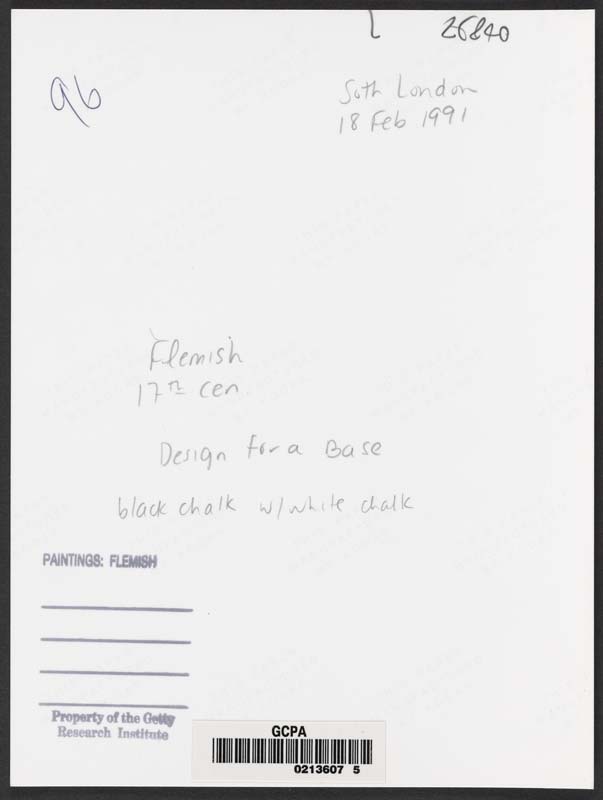 26840
96
Soth London
18 Feb 1991
Flemish
17th Cen
Design for a Base
black chalk w/white chalk
PAINTINGS: FLEMISH
Property of the Getty
Research Institute
GCPA
0213607 5